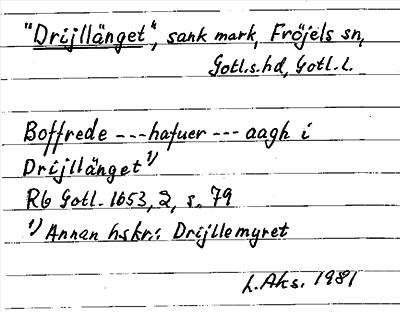 "Drijllänget", sank mark, Fröjels sn,
Gotl.s.hd, Gotl.l.
Boffrede --- hafuer --- aagh i
Drijllänget 1)
Rb Gotl. 1653, 2, s. 79
1) Annan hskr.: Drijllemyret
L.Aks. 1981